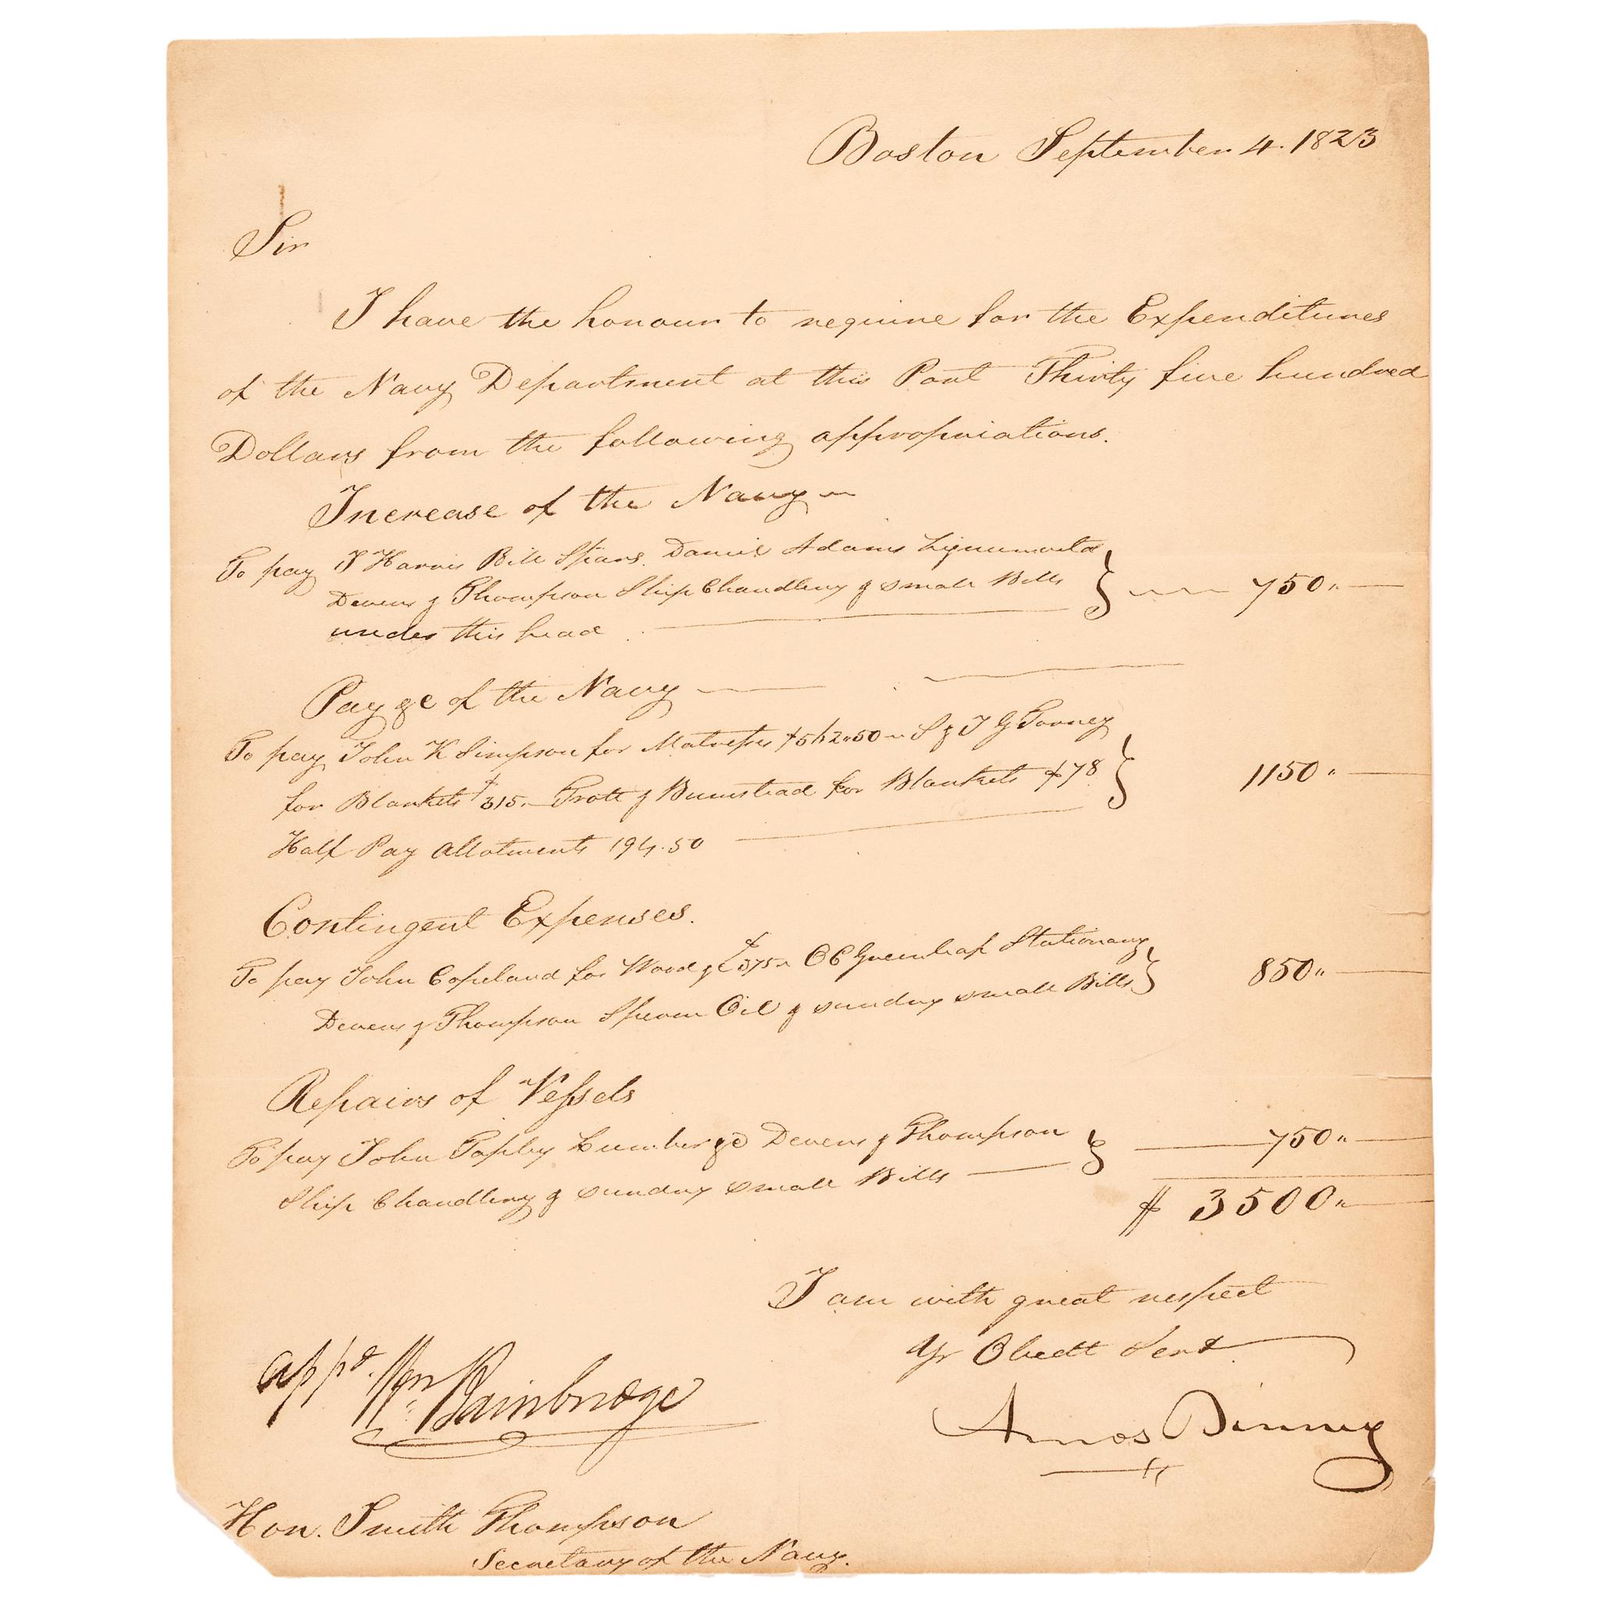 Boston September 4. 1823
Sir
I have the honour to require for the Expenditures
of the Navy Department at this Port Thirty five hundred
Dollars from the following appropriations.
Increase of the Navy
To pay S Harris Bill Spars. Daniel Adams Lignumvita
Devens & Thompson Ship Chandlery & small Bills 750
under this head
Pay &c of the Navy
To pay John K Simpson for Matresses $562.50 S & J G Torrey
for Blankets $315. Trott & Bumstead for Blankets $78 1150
Half Pay allotments 194.50
Contingent Expenses.
To pay John Copeland for Wood & $375 O C Greenleaf Stationary
Devens & Thompson Sperm Oil & sunday small Bills 850
Repairs of Vessels
To pay John Tapley Lumber &c Devens & Thompson 750
Ship Chandlery & sunday small Bills
$ 3500
I am with great respect
Yr Obedt Servt
Amos Binney
appd. Wm Bainbridge
Hon. Smith Thompson
Secretary of the Navy.